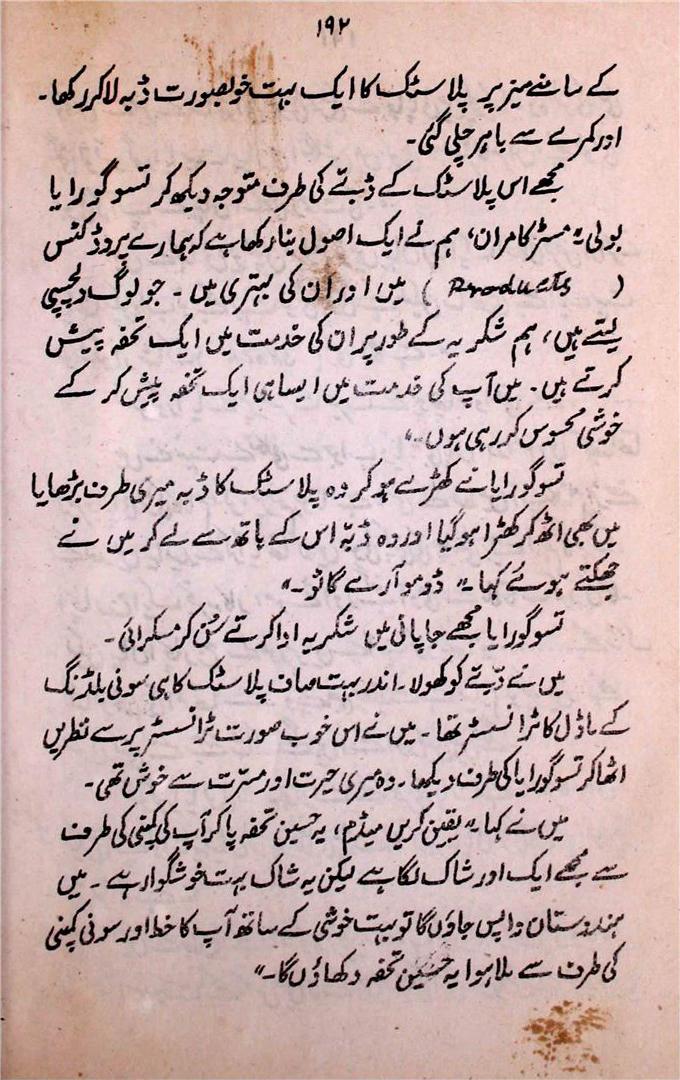 ۱۹۲
کے سامنے میز پر پلاسٹک کا ایک بہت خوبصورت ڈبہ لا کر رکھا۔
اور کمرے سے باہر چلی گئی۔
مجھے اس پلاسٹک کے ڈبّے کی طرف متوجہ دیکھ کر تسوگورایا
بولی "مسٹر کامران، ہم نے ایک اصول بنا رکھا ہے کہ ہمارے پروڈکٹس
( Products ) میں اور ان کی بہتری میں۔ جو لوگ دلچسپی
لیتے ہیں، ہم شکریہ کے طور پر ان کی خدمت میں ایک تحفہ پیش
کرتے ہیں۔ میں آپ کی خدمت میں ایسا ہی ایک تحفہ پیش کر کے
خوشی محسوس کر رہی ہوں۔"
تسوگورایا نے کھڑے ہو کر وہ پلاسٹک کا ڈبہ میری طرف بڑھایا
میں بھی اٹھ کر کھڑا ہو گیا اور وہ ڈبّہ اس کے ہاتھ سے لے کر میں نے
جھکتے ہوئے کہا۔ "ڈومو آرے گاٹو۔"
تسوگورایا مجھے جاپانی میں شکریہ ادا کرتے سُن کر مسکرائی۔
میں نے ڈبّے کو کھولا۔ اندر بہت صاف پلاسٹک کا ہی سونی بلڈنگ
کے ماڈل کا ٹرانسسٹر تھا۔ میں نے اس خوب صورت ٹرانسسٹر پر سے نظریں
اٹھا کر تسوگورایا کی طرف دیکھا۔ وہ میری حیرت اور مسرّت سے خوش تھی۔
میں نے کہا "یقین کریں میڈم، یہ حسین تحفہ پا کر آپ کی کمپنی کی طرف
سے مجھے ایک اور شاک لگا ہے لیکن یہ شاک بہت خوشگوار ہے۔ میں
ہندوستان واپس جاؤں گا تو بہت خوشی کے ساتھ آپ کا خط اور سونی کمپنی
کی طرف سے ملا ہوا یہ حسین تحفہ دکھاؤں گا۔"